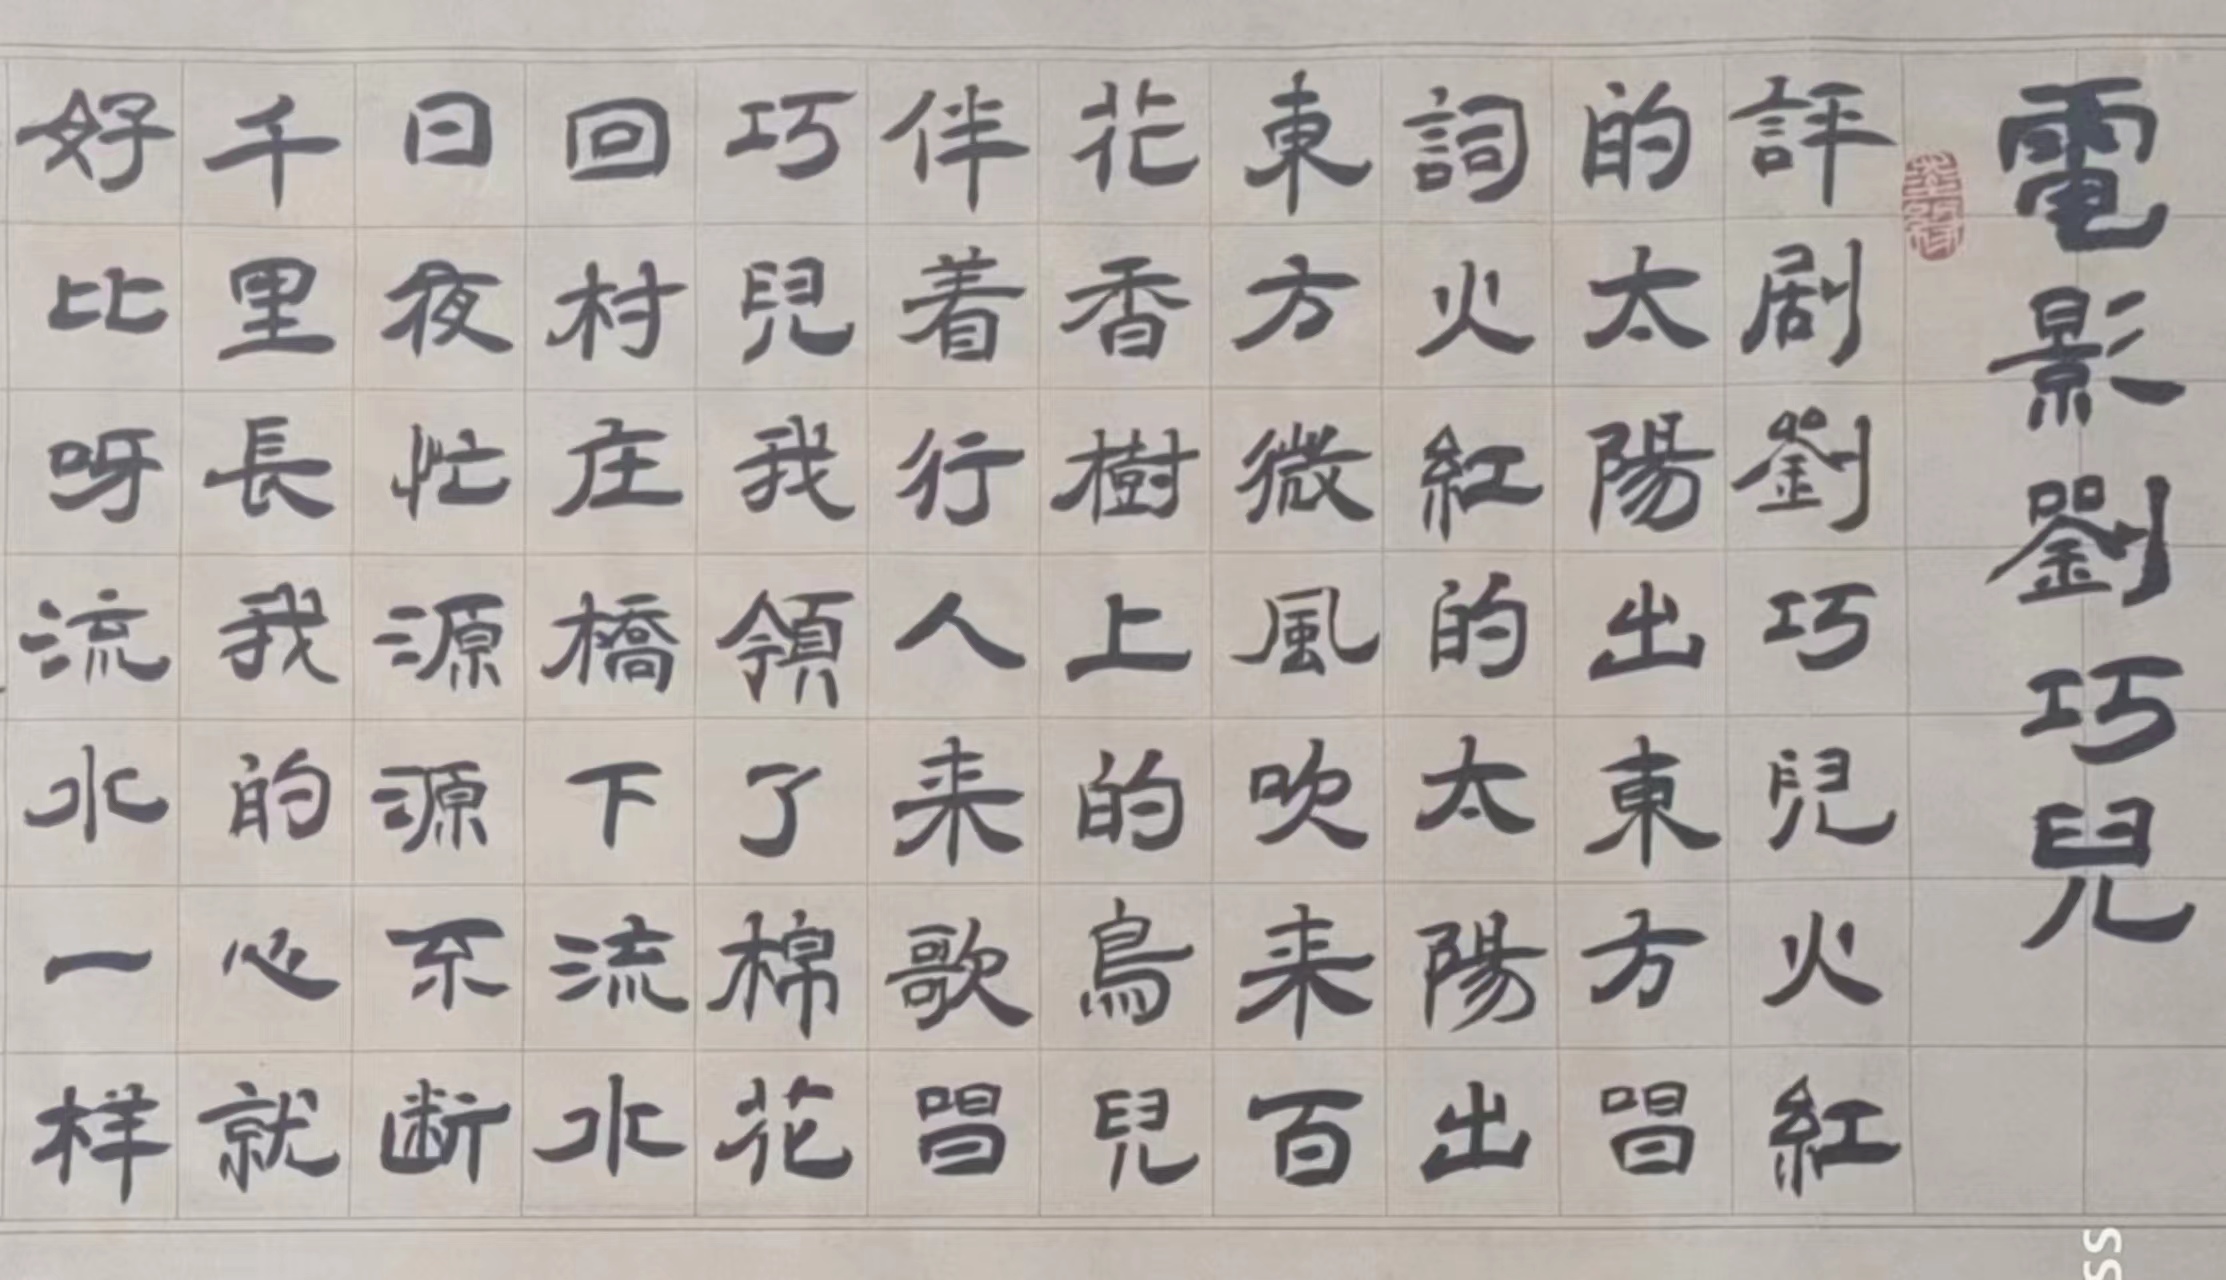 電影劉巧兒
評剧劉巧兒火紅
的太陽出東方唱
詞火紅的太陽出
東方微風吹来百
花香樹上的鳥兒
伴着行人来歌唱
巧兒我領了棉花
回村庄橋下流水
日夜忙源源不断
千里長我的心就
好比呀流水一样
ss